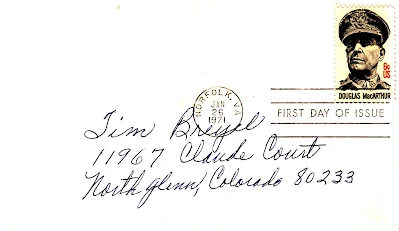 6c
US
DOUGLAS MacARTHUR
NORFOLK, VA
JAN
26
1971
FIRST DAY OF ISSUE
Tim Breyel
11967 Claude Court
Northglenn, Colorado 80233